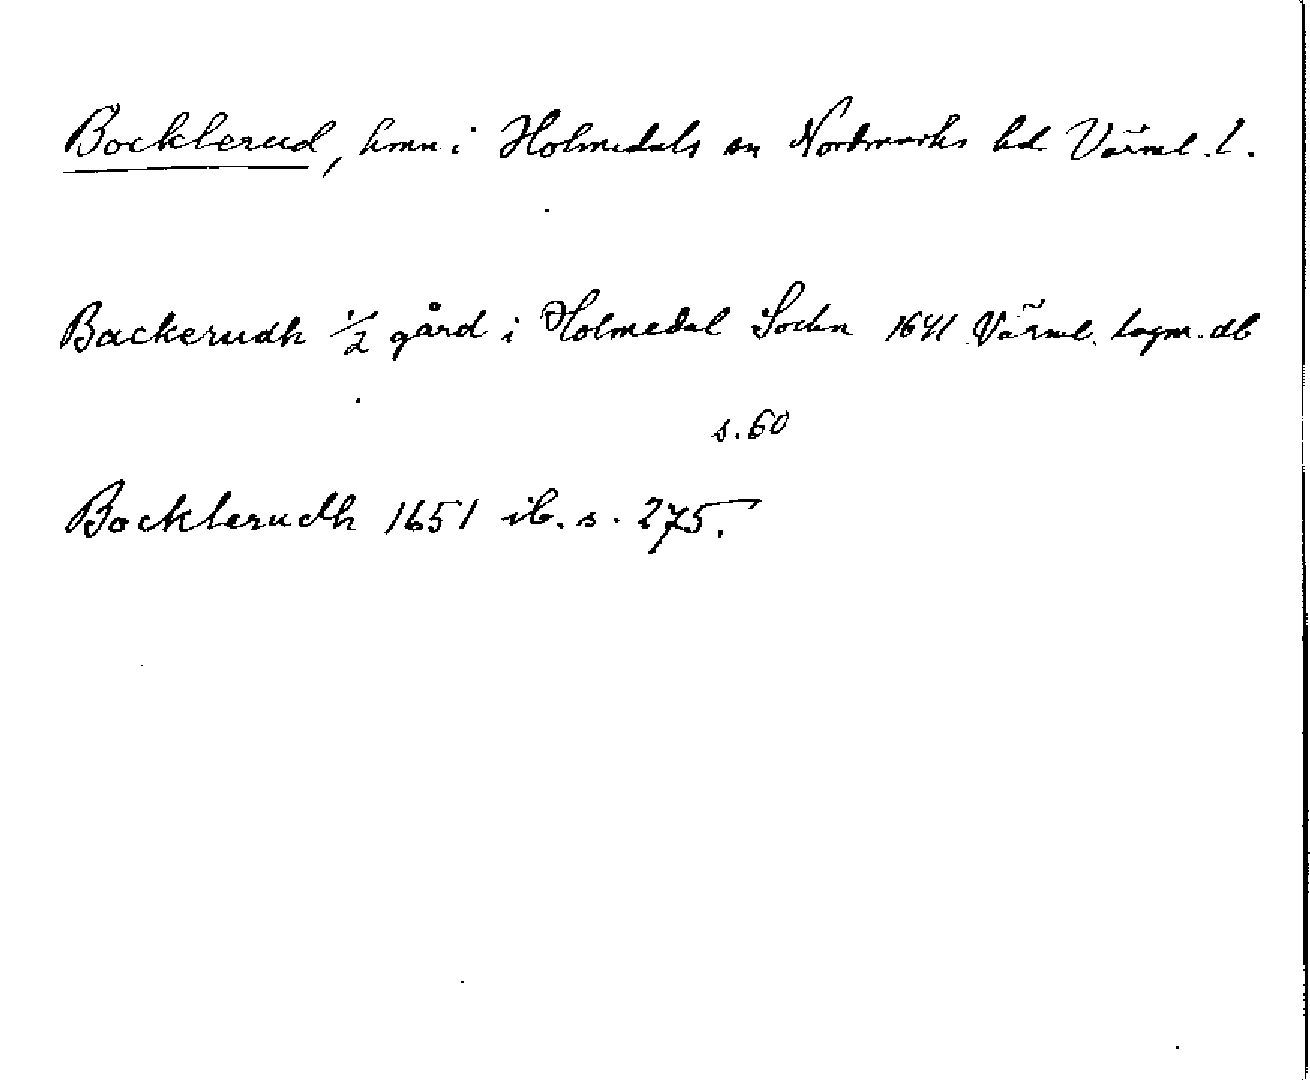 Bocklerud, hmn i Holmedals sn Nordmarks hd Värml. l.
Backerudh 1/2 gård i Holmedal Sochn 1641 Värml. lagm. db
s. 60
Bocklerudh 1651 ib. s. 275.